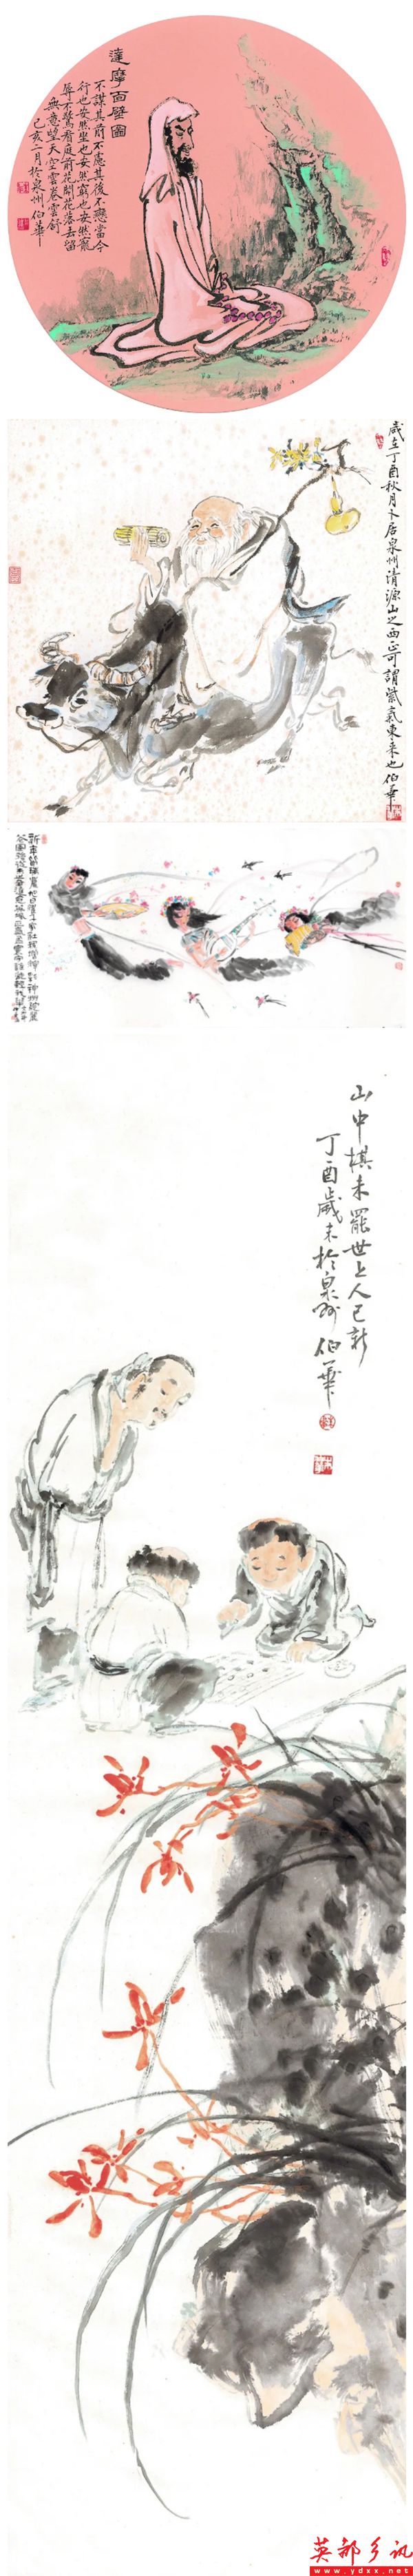 達摩面壁圖
不謀其前不慮其後不戀當今
行也安然坐也安然窮也安然寵
辱不驚看庭前花開花落去留
無意望天空雲卷雲舒
己亥二月於泉州伯華
歲在丁酉秋月卜居泉州清源山之西正可謂紫氣東来也伯華
山中棋未罷世上人已新
丁酉歲末於泉州伯華
英都乡讯
www.ydxx.net